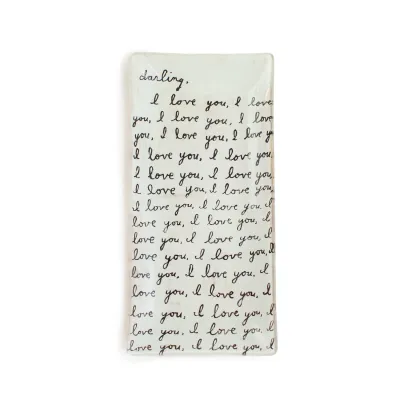 darling,
I love you, I love
you, I love you, I love
you, I love you, I love
I love you, I love you,
I love you, I love you,
I love you, I love you,
I love you, I love you,
love you, I love you, I
love you, I love you, I
love you, I love you, I
love you, I love you, I
love you, I love you, I
love you, I love you, I
love you, I love you, I
love you, I love you, I